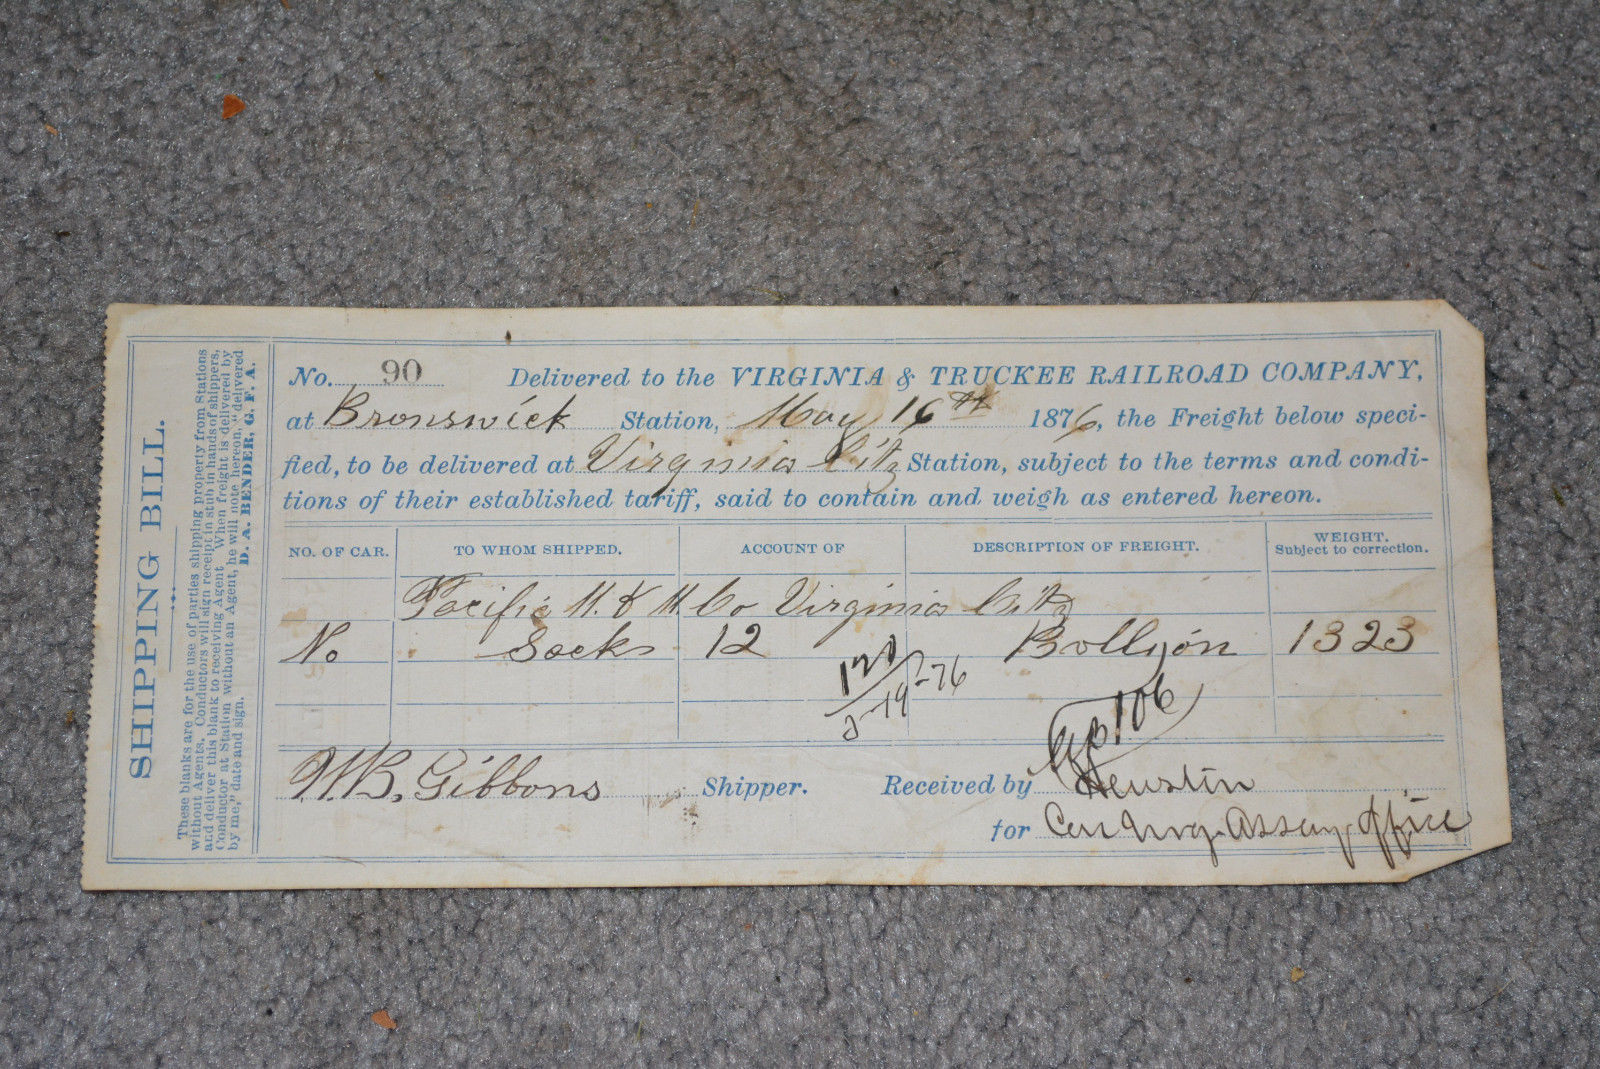 SHIPPING BILL.
These blanks are for the use of parties shipping property from Stations
without Agents. Conductors will sign receipt in stub in hands of shippers,
and deliver this blank to receiving Agent When freight is delivered by
Conductor at Station without an Agent, he will note hereon, "delivered
by me," date and sign.
D. A. BENDER, G. F. A.
No. 90 Delivered to the VIRGINIA & TRUCKEE RAILROAD COMPANY,
at Bronswick Station, May 16th 1876, the Freight below speci-
fied, to be delivered at Virginia City Station, subject to the terms and condi-
tions of their established tariff, said to contain and weigh as entered hereon.
NO. OF CAR. TO WHOM SHIPPED. ACCOUNT OF DESCRIPTION OF FREIGHT. WEIGHT. Subject to correction.
Pacific M. & M. Co Virginia City
No Sacks 12 Bollyon 1323
5-19-76
106
W.B. Gibbons Shipper. Received by Heustin
for Con Virg. Assay Office